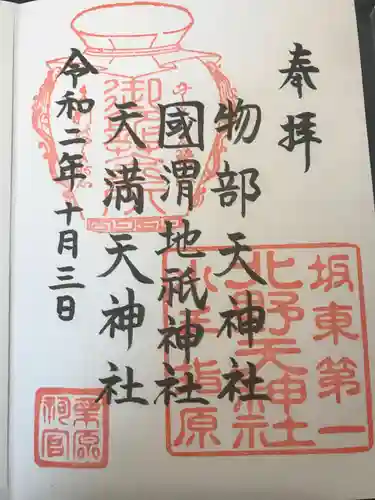 奉拝
物部天神社
國渭地祇神社
天満天神社
令和二年十月三日
坂東第一
北野天神社